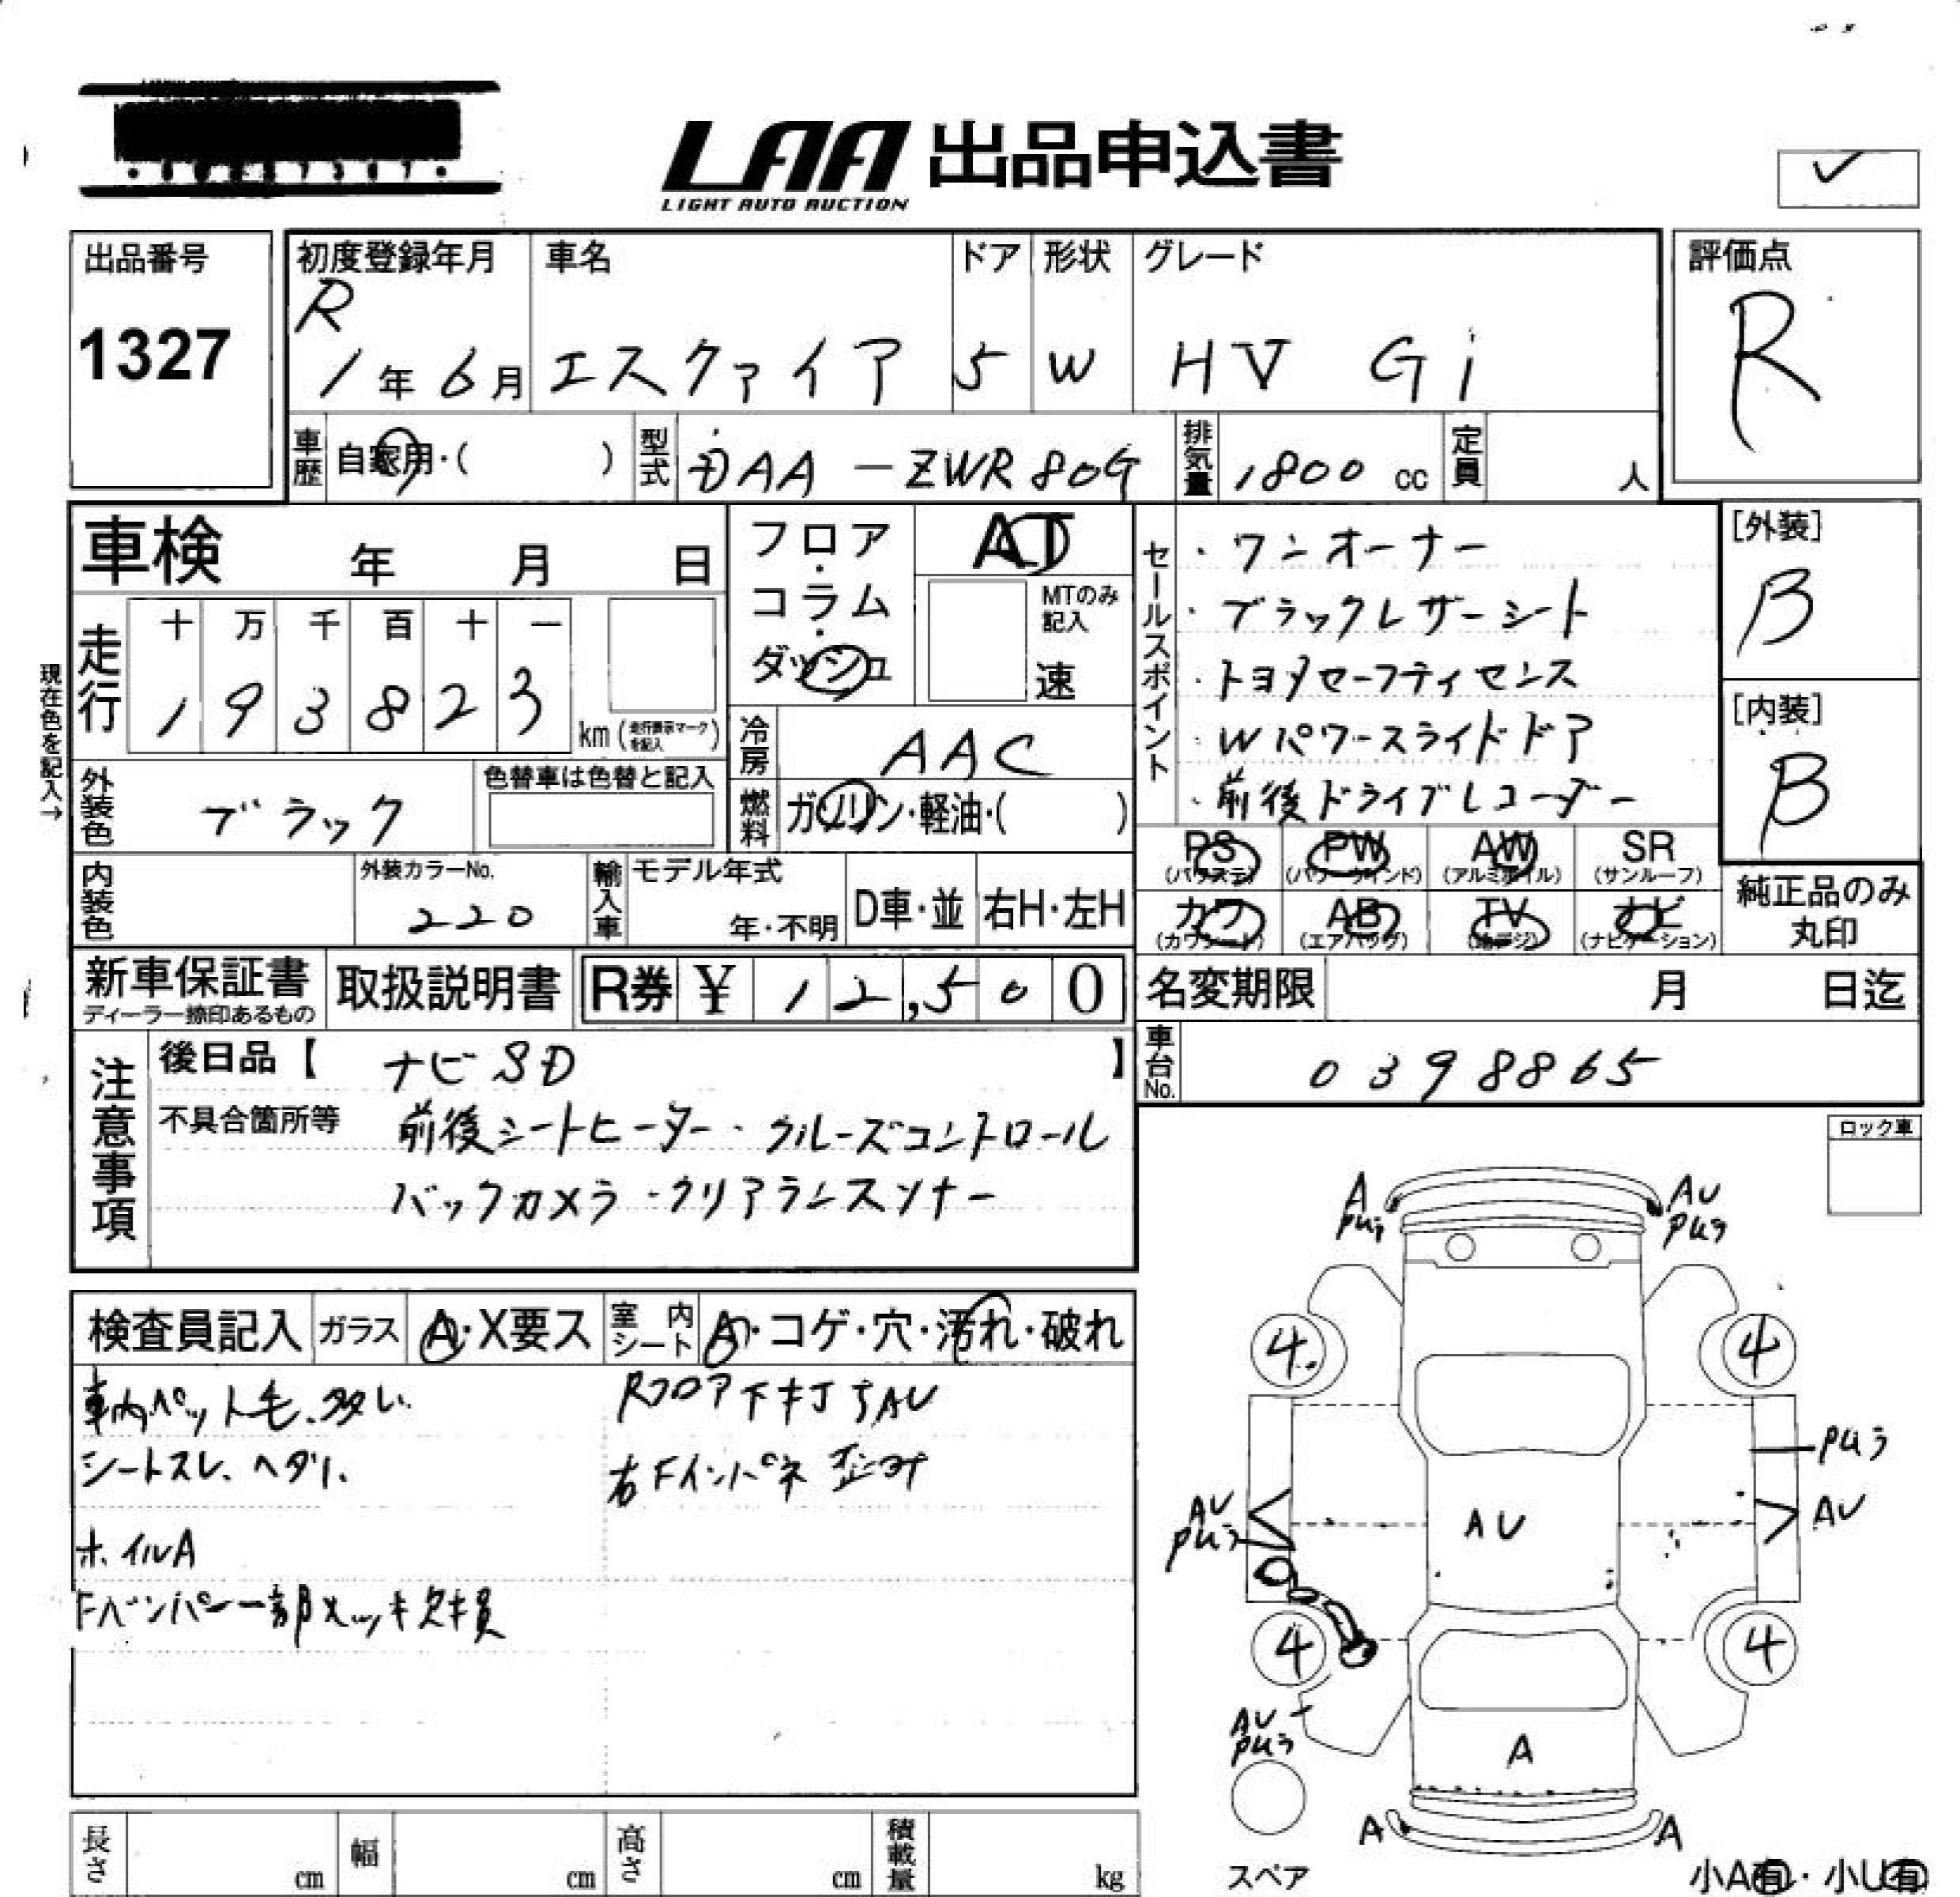 LAA 出品申込書
LIGHT AUTO AUCTION
出品番号
1327
初度登録年月
R
1年6月
車名
エスクァイア
ドア
5
形状
W
グレード
HV Gi
評価点
R
車歴
自家用・( )
型式
DAA-ZWR80G
排気量
1800 cc
定員
人
車検 年 月 日
走行
十 万 千 百 十 一
1 9 3 8 2 3
km(走行表示マークを記入)
現在色を記入→
外装色
ブラック
色替車は色替と記入
内装色
外装カラーNo.
220
フロア・コラム・ダッシュ
AT
MTのみ記入
速
冷房
AAC
燃料
ガソリン・軽油・( )
輸入車
モデル年式
年・不明
D車・並
右H・左H
セールスポイント
・ワンオーナー
・ブラックレザーシート
・トヨタセーフティセンス
・Wパワースライドドア
・前後ドライブレコーダー
[外装]
B
[内装]
B
PS (パワステ)
PW (パワーウィンド)
AW (アルミホイル)
SR (サンルーフ)
カワ (カワシート)
AB (エアバッグ)
TV (地デジ)
ナビ (ナビゲーション)
純正品のみ丸印
新車保証書
ディーラー捺印あるもの
取扱説明書
R券 ¥ 12,500
名変期限 月 日迄
車台No.
0398865
注意事項
後日品【 ナビSD 】
不具合箇所等
前後シートヒーター・クルーズコントロール
バックカメラ・クリアランスソナー
ロック車
検査員記入
ガラス
A・X要ス
室内シート
A・コゲ・穴・汚れ・破れ
車内ペット毛、多い
シートスレ、ヘタリ、
ホイルA
Fバンパー一部メッキ欠損
Rフロア下キズAU
右Fインパネ歪み
A
AU
4
4
AU
AU
AU
4
4
AU
A
A
A
スペア
小A有・小U有
長さ cm
幅 cm
高さ cm
積載量 kg